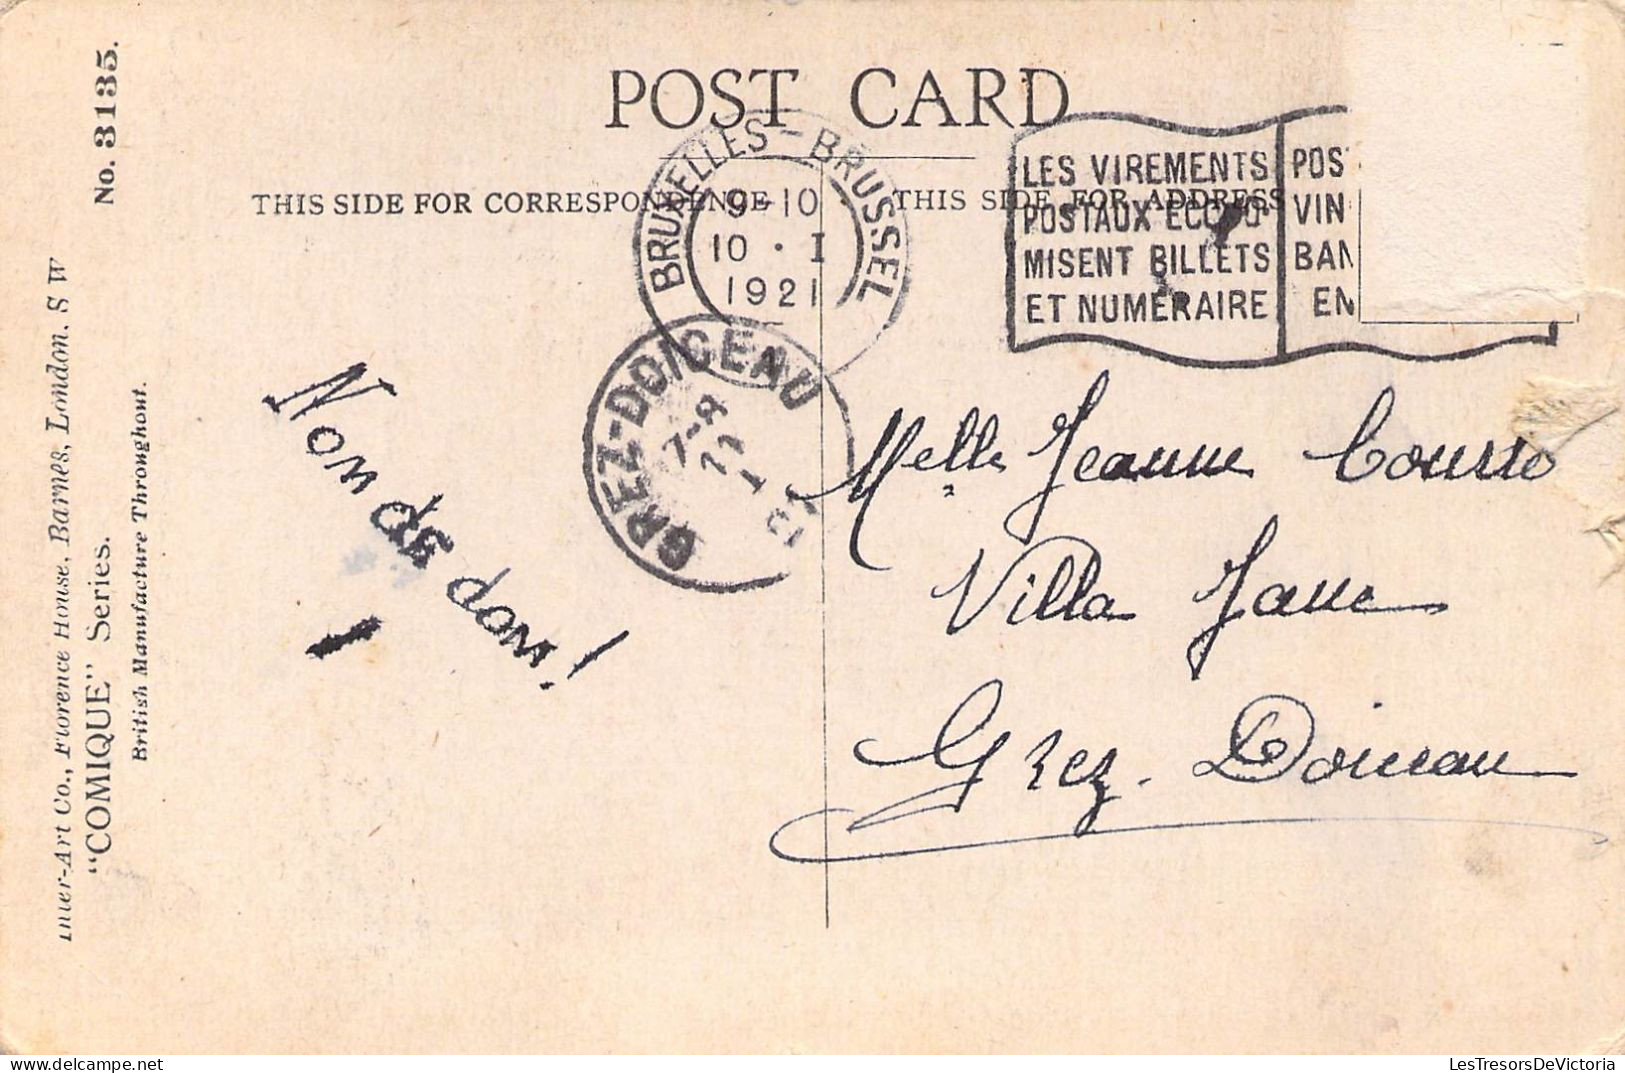 POST CARD
THIS SIDE FOR CORRESPONDENCE
THIS SIDE FOR ADDRESS
BRUXELLES-BRUSSEL
9-10
10 · I
1921
LES VIREMENTS
POSTAUX ECONO-
MISENT BILLETS
ET NUMÉRAIRE
POS
VIN
BAN
EN
GREZ-DOICEAU
7-8
11
Non de dom!
Melle Jeanne
Villa Jane
Grez-Doiceau
No. 3135.
Inter-Art Co., Florence House, Barnes, London. S W
"COMIQUE" Series.
British Manufacture Throughout.
LesTresorsDeVictoria